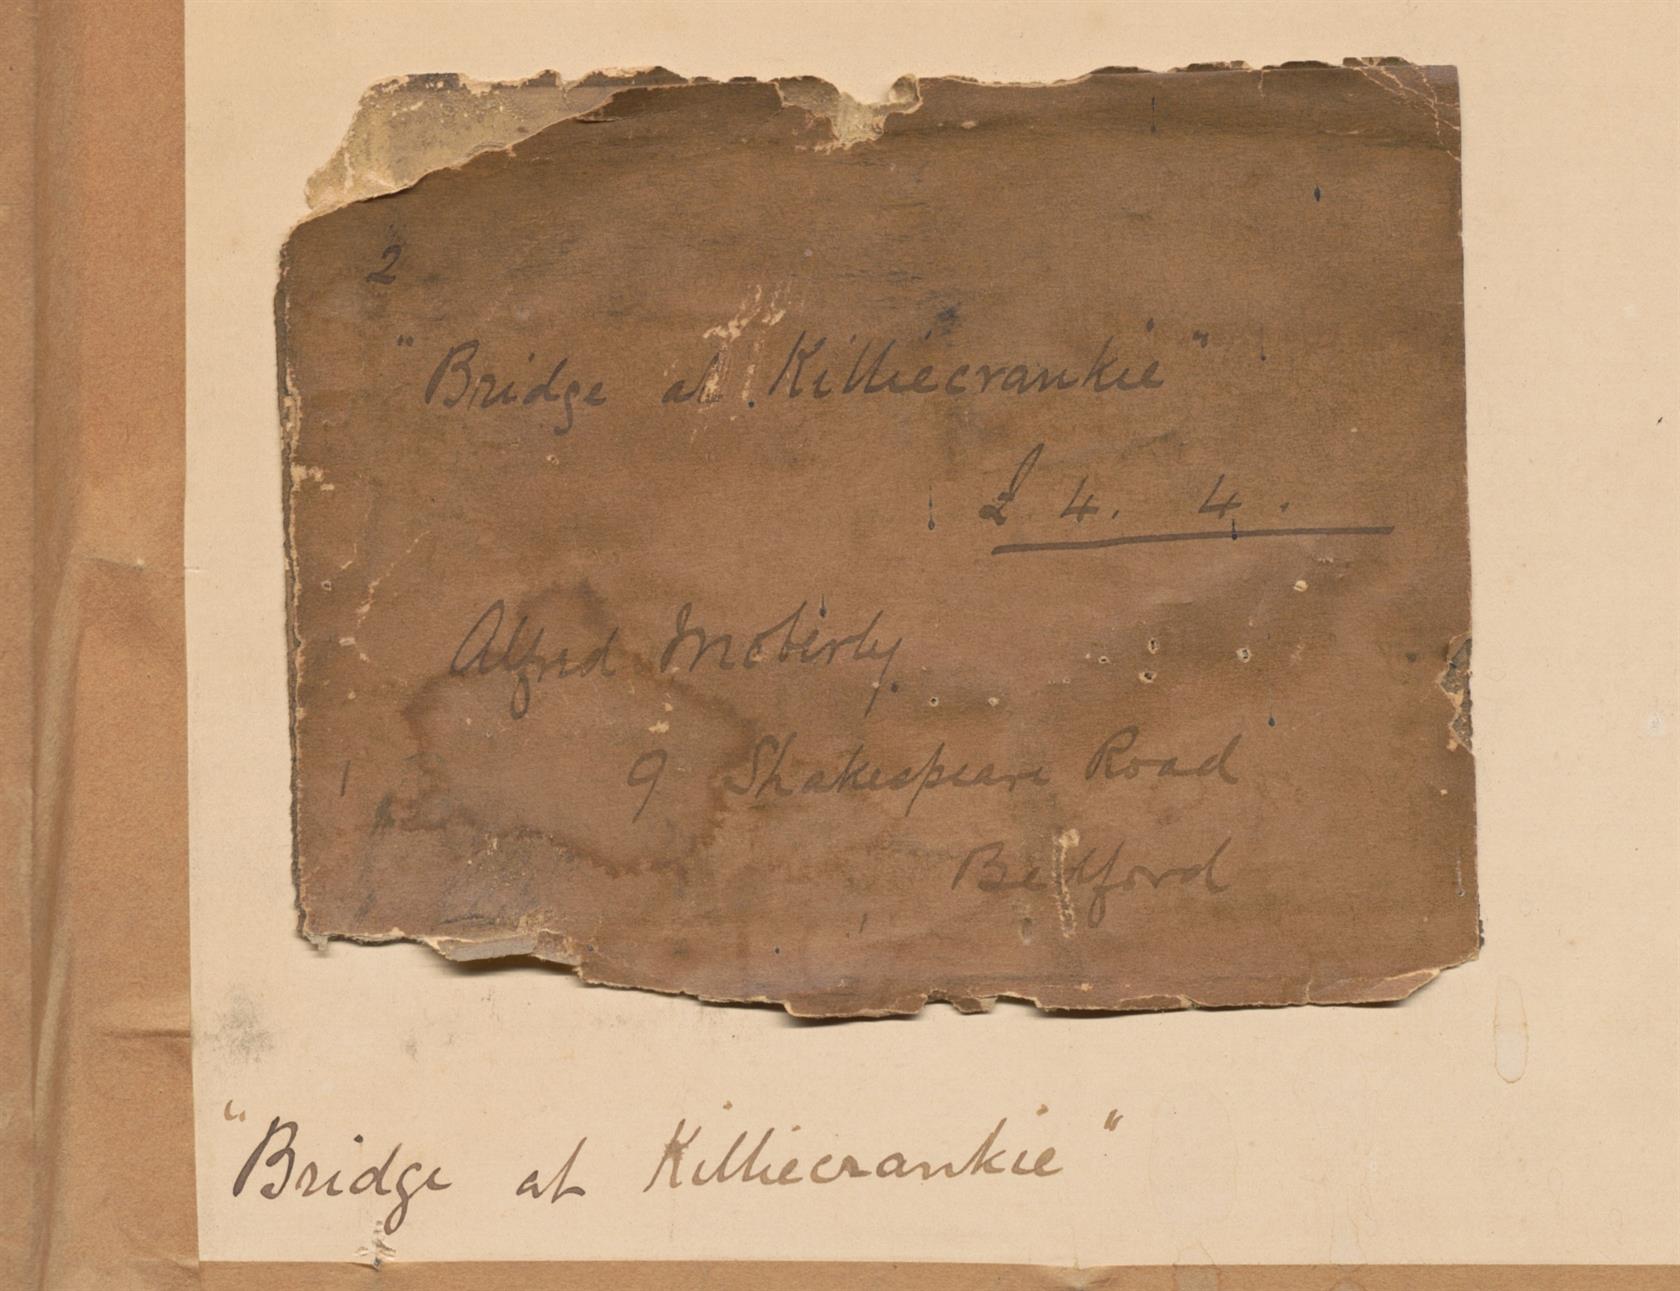 2
"Bridge at Killiecrankie"
£ 4. 4.
Alfred Moberly
9 Shakespeare Road
Bedford
"Bridge at Killiecrankie"